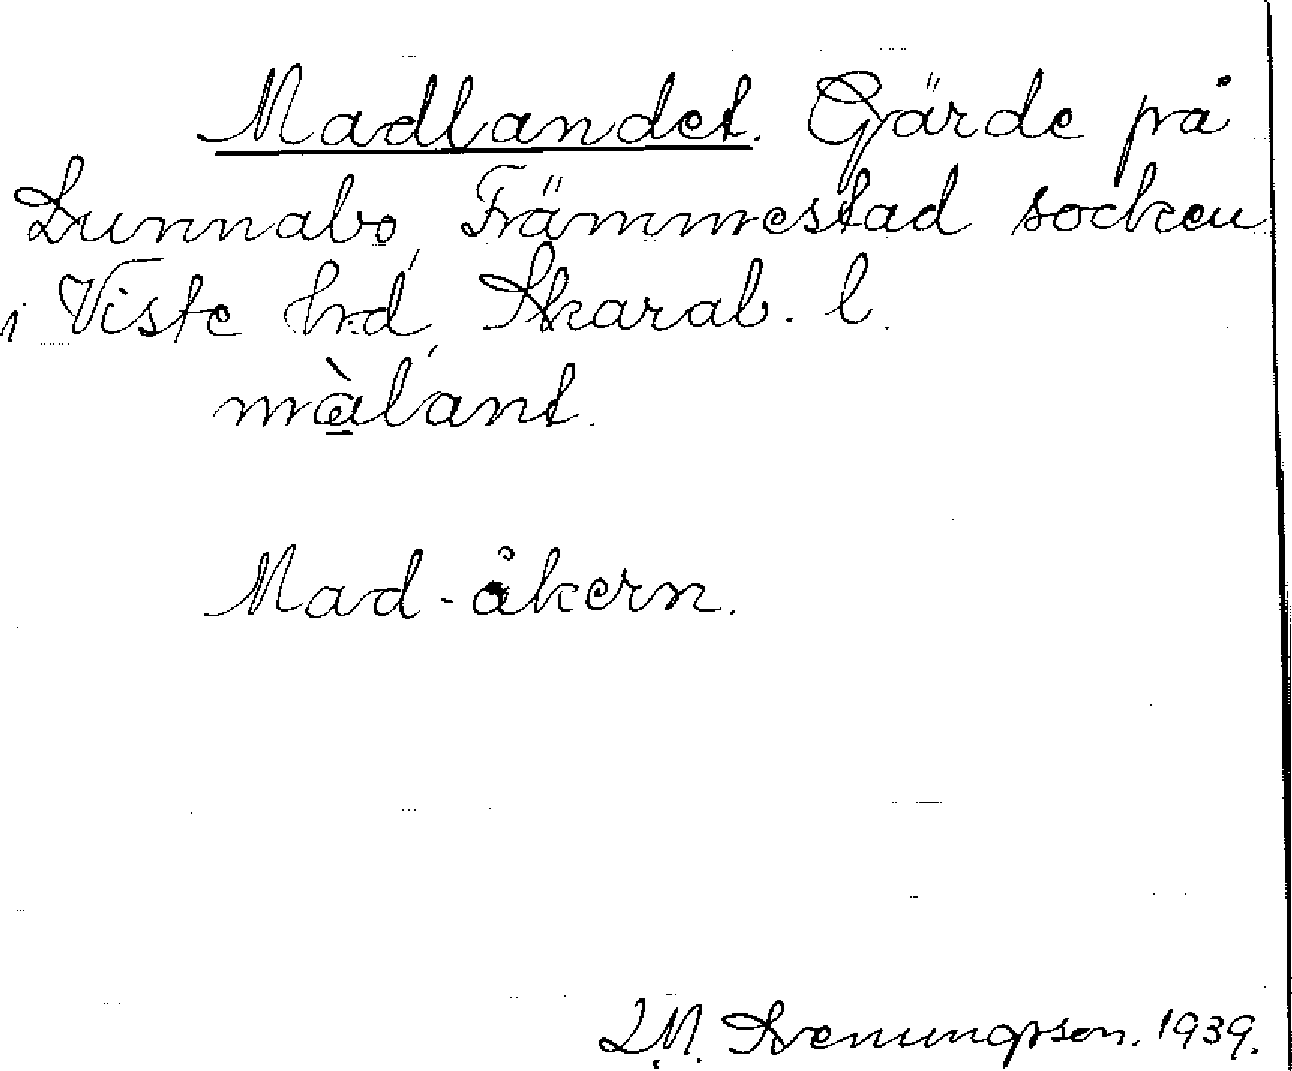 Madlandet. Gärde på
Lunnabo, Främmestad socken
i Viste hd, Skarab. l.
màlant.
Mad-åkern.
L.M. Svenungsson. 1939.